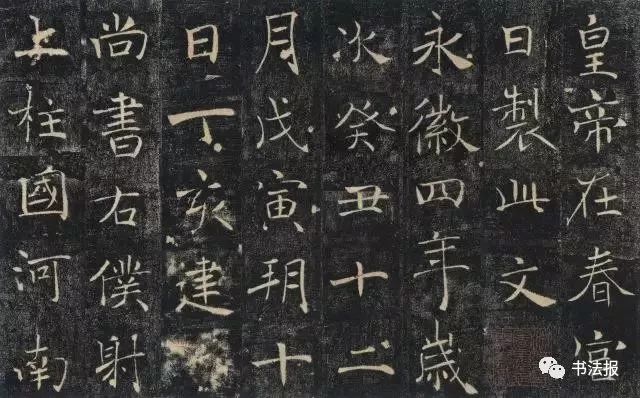 皇帝在春宮
日製此文
永徽四年歲
次癸丑十二
月戊寅玥十
日丁亥建
尚書右僕射
上柱國河南
书法报